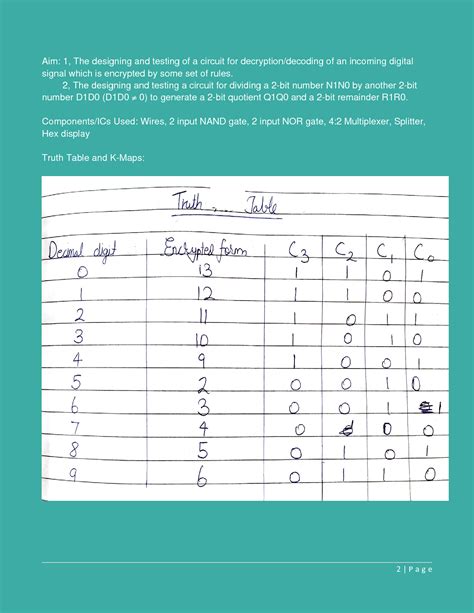 Aim: 1, The designing and testing of a circuit for decryption/decoding of an incoming digital
signal which is encrypted by some set of rules.
2, The designing and testing a circuit for dividing a 2-bit number N1N0 by another 2-bit
number D1D0 (D1D0 ≠ 0) to generate a 2-bit quotient Q1Q0 and a 2-bit remainder R1R0.
Components/ICs Used: Wires, 2 input NAND gate, 2 input NOR gate, 4:2 Multiplexer, Splitter,
Hex display
Truth Table and K-Maps:
Truth Table
Decimal digit Encrypted form C3 C2 C1 C0
0 13 1 1 0 1
1 12 1 1 0 0
2 11 1 0 1 1
3 10 1 0 1 0
4 9 1 0 0 1
5 2 0 0 1 0
6 3 0 0 1 1
7 4 0 0 0
8 5 0 1 0 1
9 6 0 1 1 0
2 | P a g e